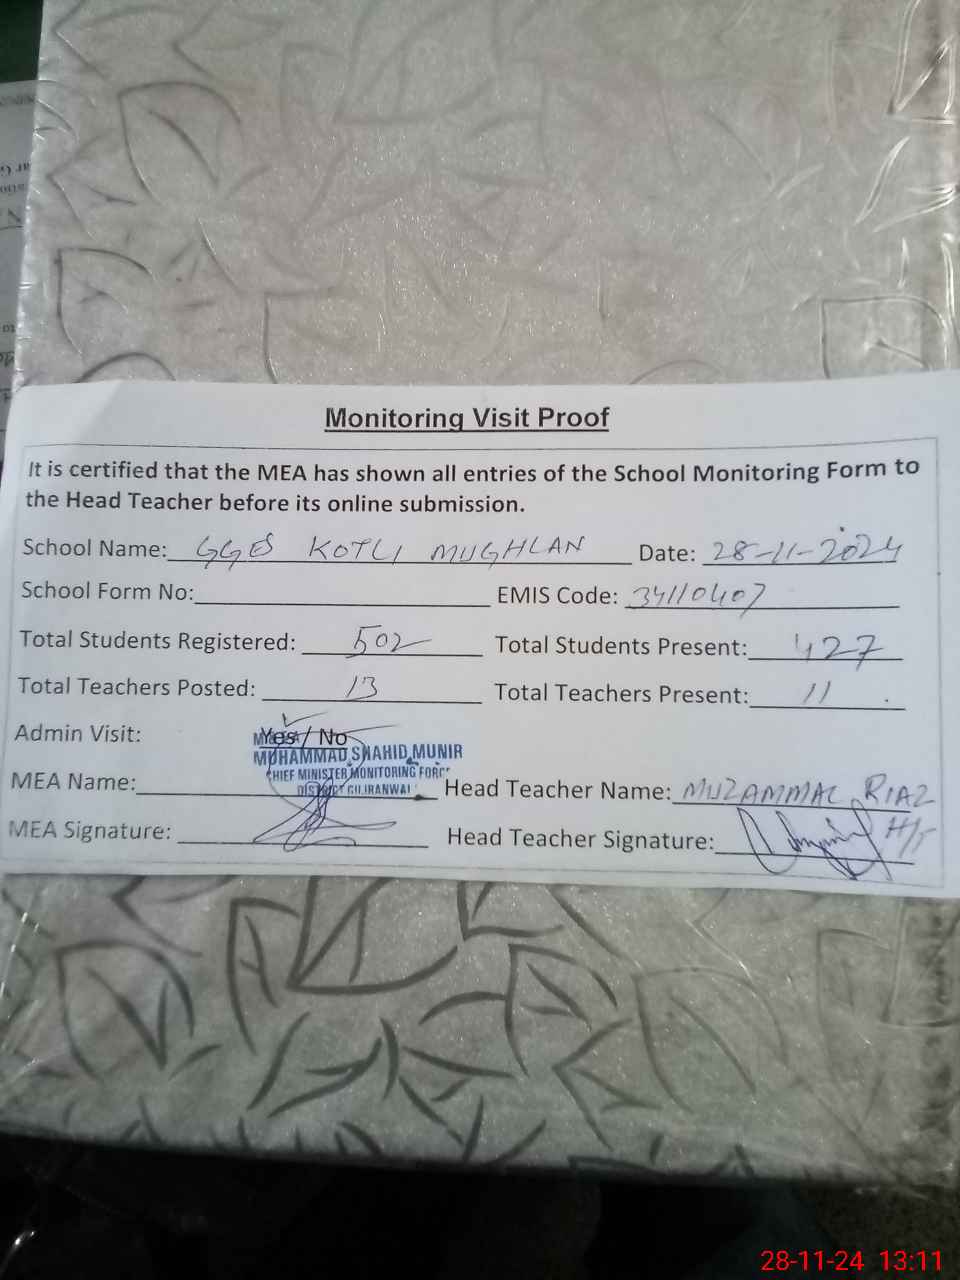 Monitoring Visit Proof
It is certified that the MEA has shown all entries of the School Monitoring Form to
the Head Teacher before its online submission.
School Name: GGES KOTLI MUGHLAN Date: 28-11-2024
School Form No: EMIS Code: 34110407
Total Students Registered: 502 Total Students Present: 427
Total Teachers Posted: 13 Total Teachers Present: 11
Admin Visit: Yes / No
MUHAMMAD SHAHID MUNIR
CHIEF MINISTER MONITORING FORCE
DISTRICT GUJRANWALA
MEA Name: Head Teacher Name: MUZAMMAL RIAZ
MEA Signature: Head Teacher Signature: H/T
28-11-24 13:11